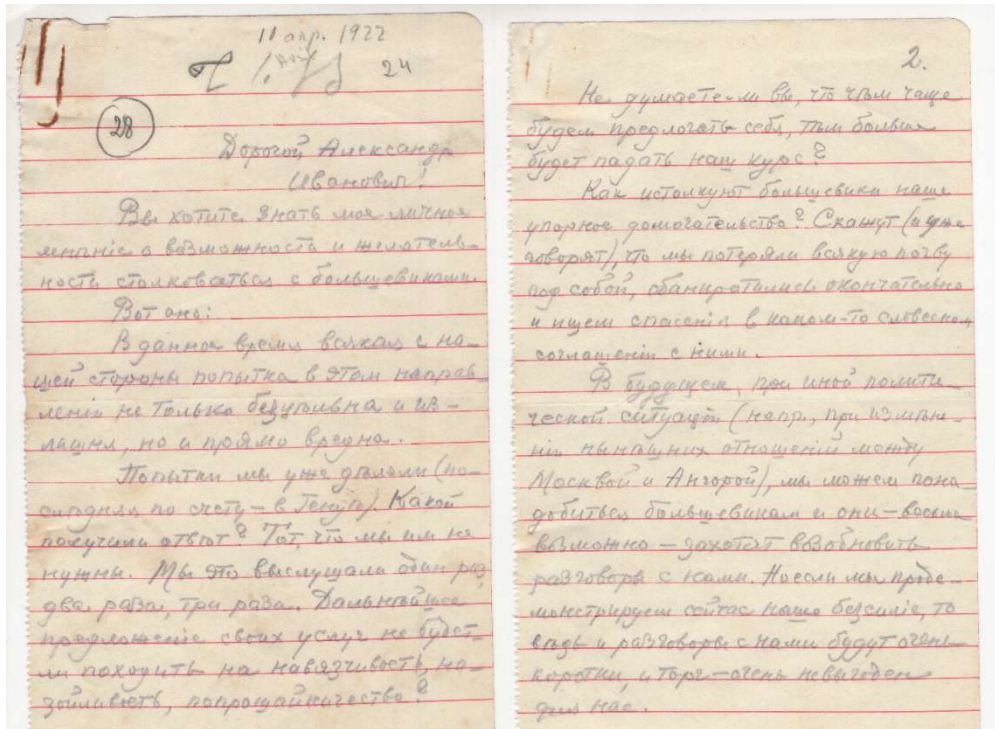 11 апр. 1922
24
28
Дорогой Александр
Иванович!
Вы хотите знать мое личное
мнѣніе о возможности и желатель-
ности столковаться с большевиками.
Вот оно:
В данное время всякая с на-
шей стороны попытка в этом направ-
леніи не только безцѣльна и из-
лишня, но и прямо вредна.
Попытки мы уже дѣлали (по-
слѣдняя по счету – в Генуѣ). Какой
получили отвѣт? Тот, что мы им не
нужны. Мы это выслушали один раз,
два раза, три раза. Дальнѣйшее
предложеніе своих услуг не будет-
ли походить на навязчивость, на-
зойливость, попрошайничество?
2.
Не думаете-ли вы, что чѣм чаще
будем предлогать себя, тѣм больше
будет падать наш курс?
Как истолкуют большевики наше
упорное домогательство? Скажут (и уже
говорят), что мы потеряли всякую почву
под собой, обанкротились окончательно
и ищем спасенія в каком-то словесном
соглашеніи с ними.
В будущем, при иной полити-
ческой ситуаціи (напр., при измѣне-
ніи нынѣшних отношеній между
Москвой и Ангорой), мы можем пона-
добиться большевикам и они – весьма
возможно – захотят возобновить
разговоры с нами. Но если мы проде-
монстрируем сейчас наше безсиліе, то
вѣдь и разговоры с нами будут очень
коротки, и торг – очень невыгоден
для нас.